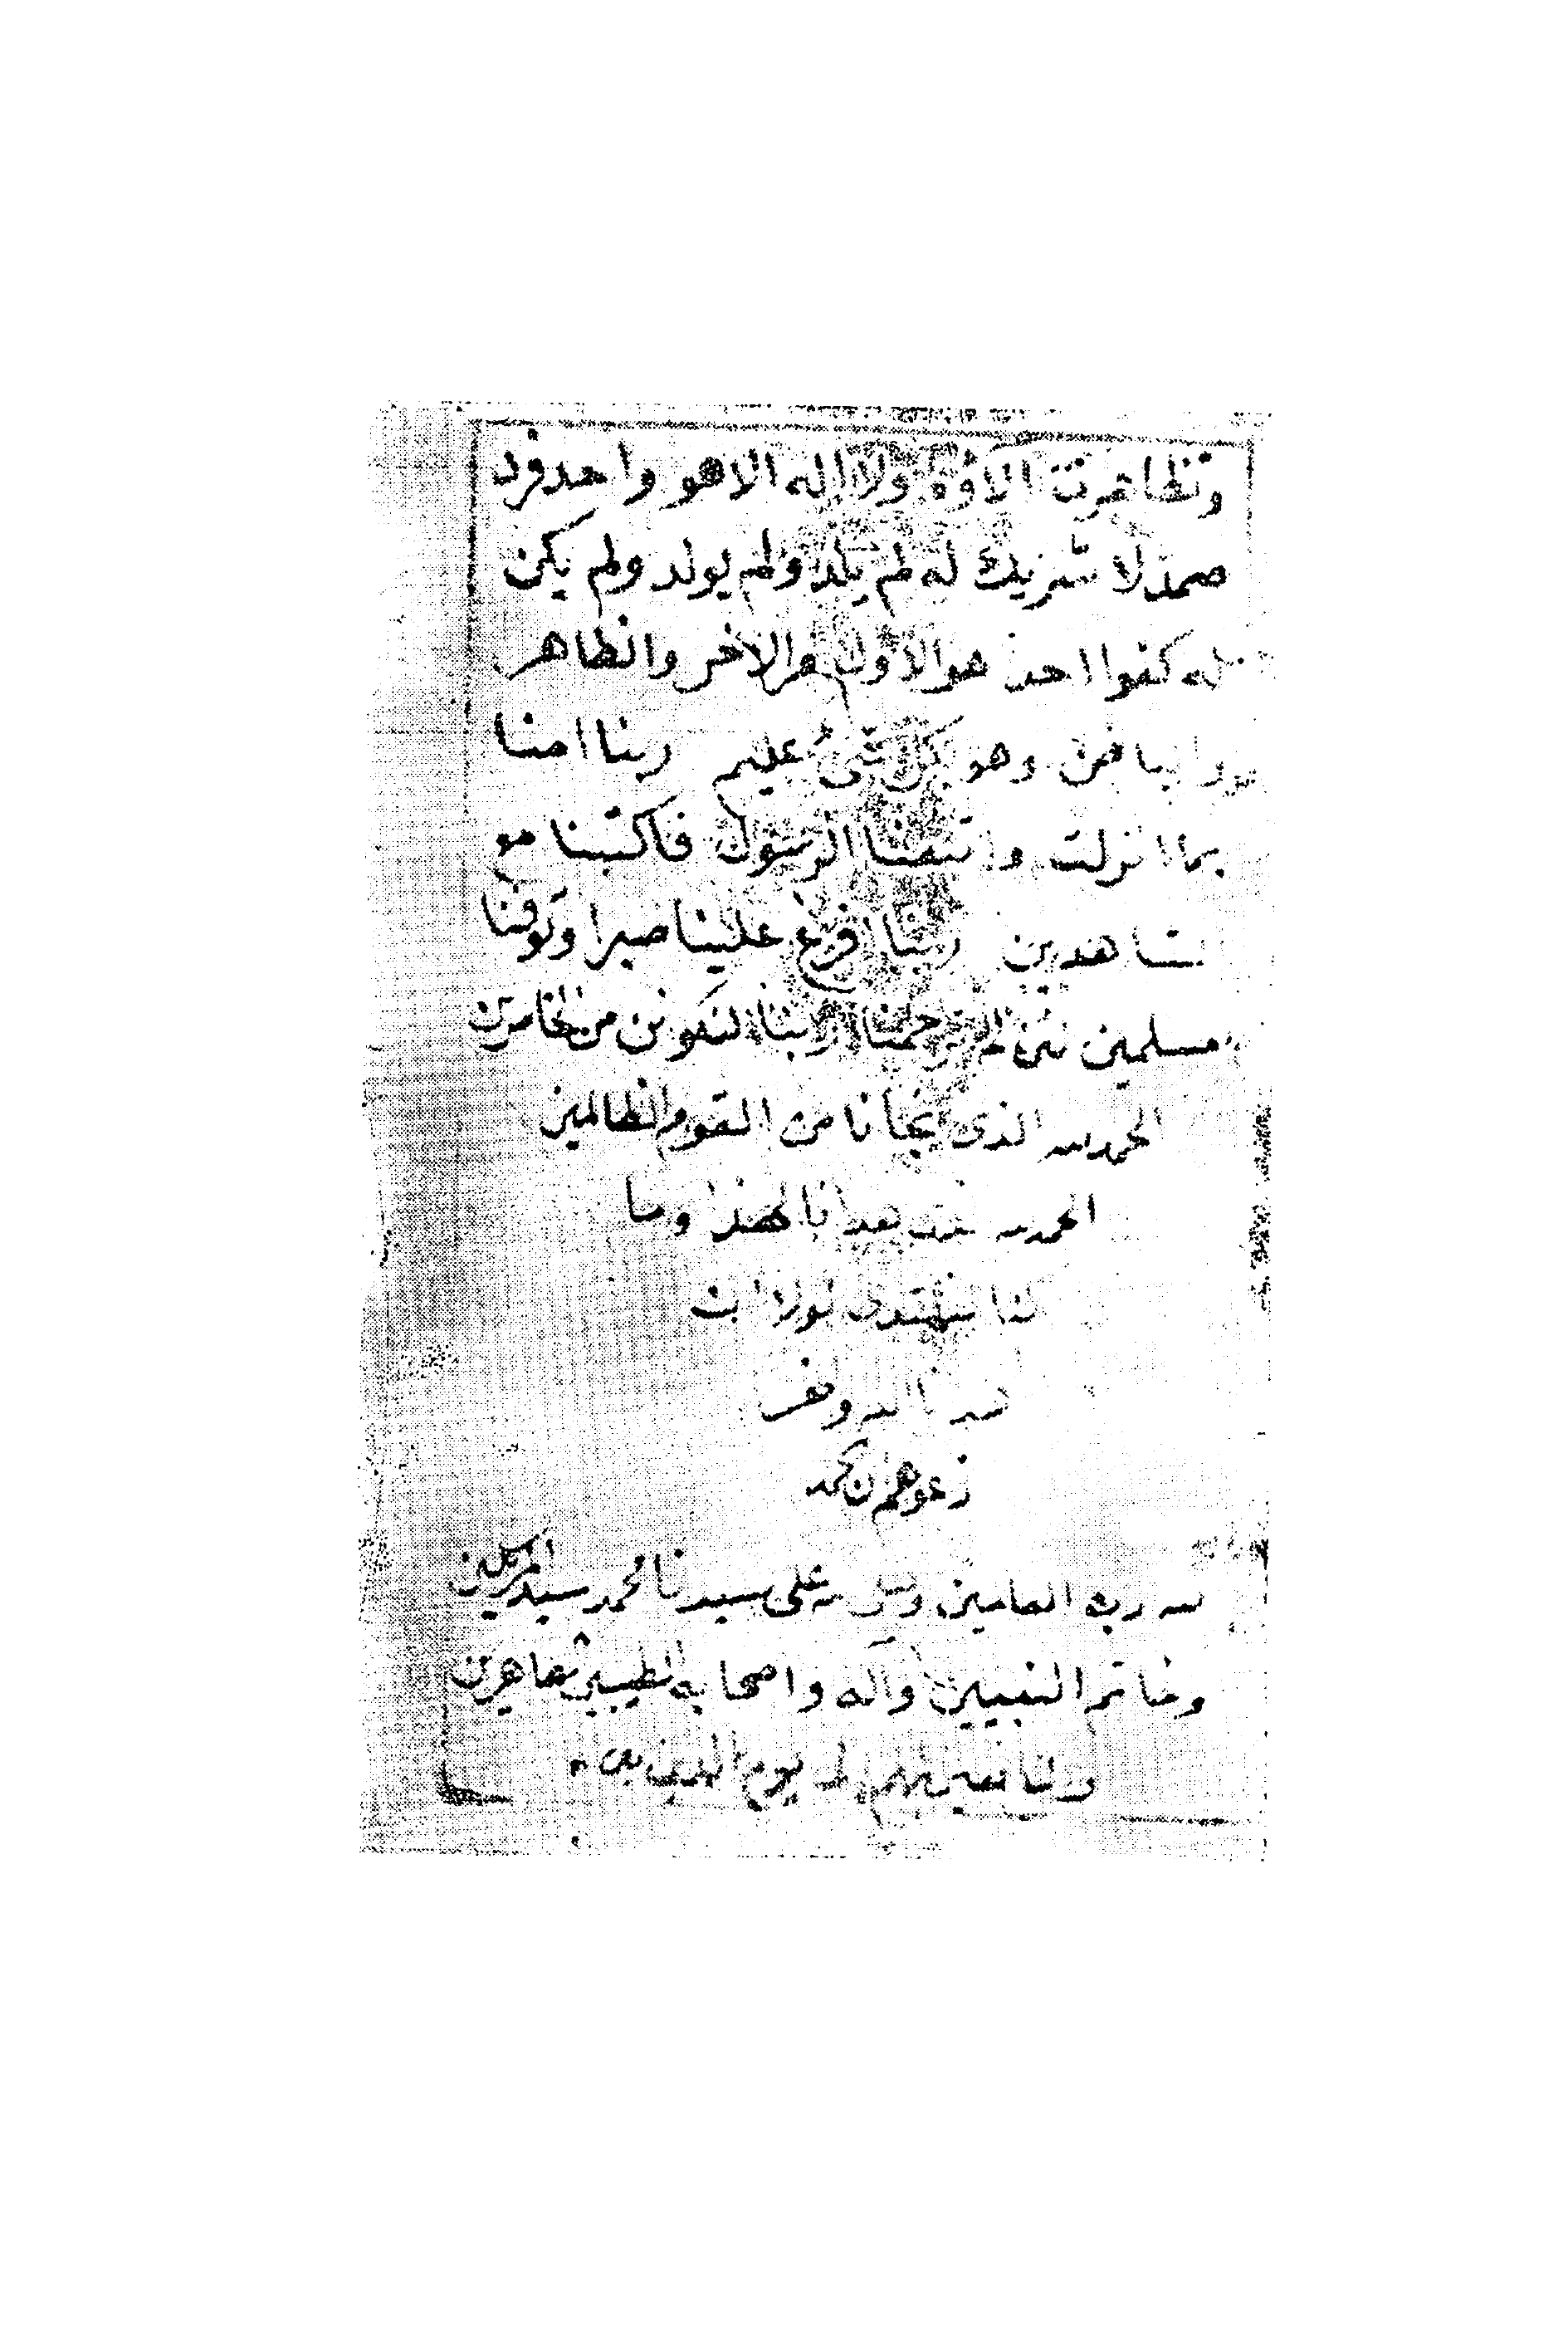 وتظاهرت آلاؤه ولا اله الا هو واحد فرد
صمد لا شريك له لم يلد ولم يولد ولم يكن
له كفوا احد هو الاول والاخر والظاهر
والباطن وهو بكل شئ عليم ربنا امنا
بما انزلت واتبعنا الرسول فاكتبنا مع
الشاهدين ربنا افرغ علينا صبرا وتوفنا
مسلمين لئن لم ترحمنا ربنا لنكونن من الخاسرين
الحمد لله الذى نجانا من القوم الظالمين
الحمد لله الذى هدانا لهذا وما
كنا لنهتدى لولا ان
هدانا الله واخر
دعوهم ان الحمد
لله رب العالمين وصلى الله على سيدنا محمد سيد المرسلين
وخاتم النبيين وآله واصحابه الطيبين الطاهرين
والتابعين لهم الى يوم الدين